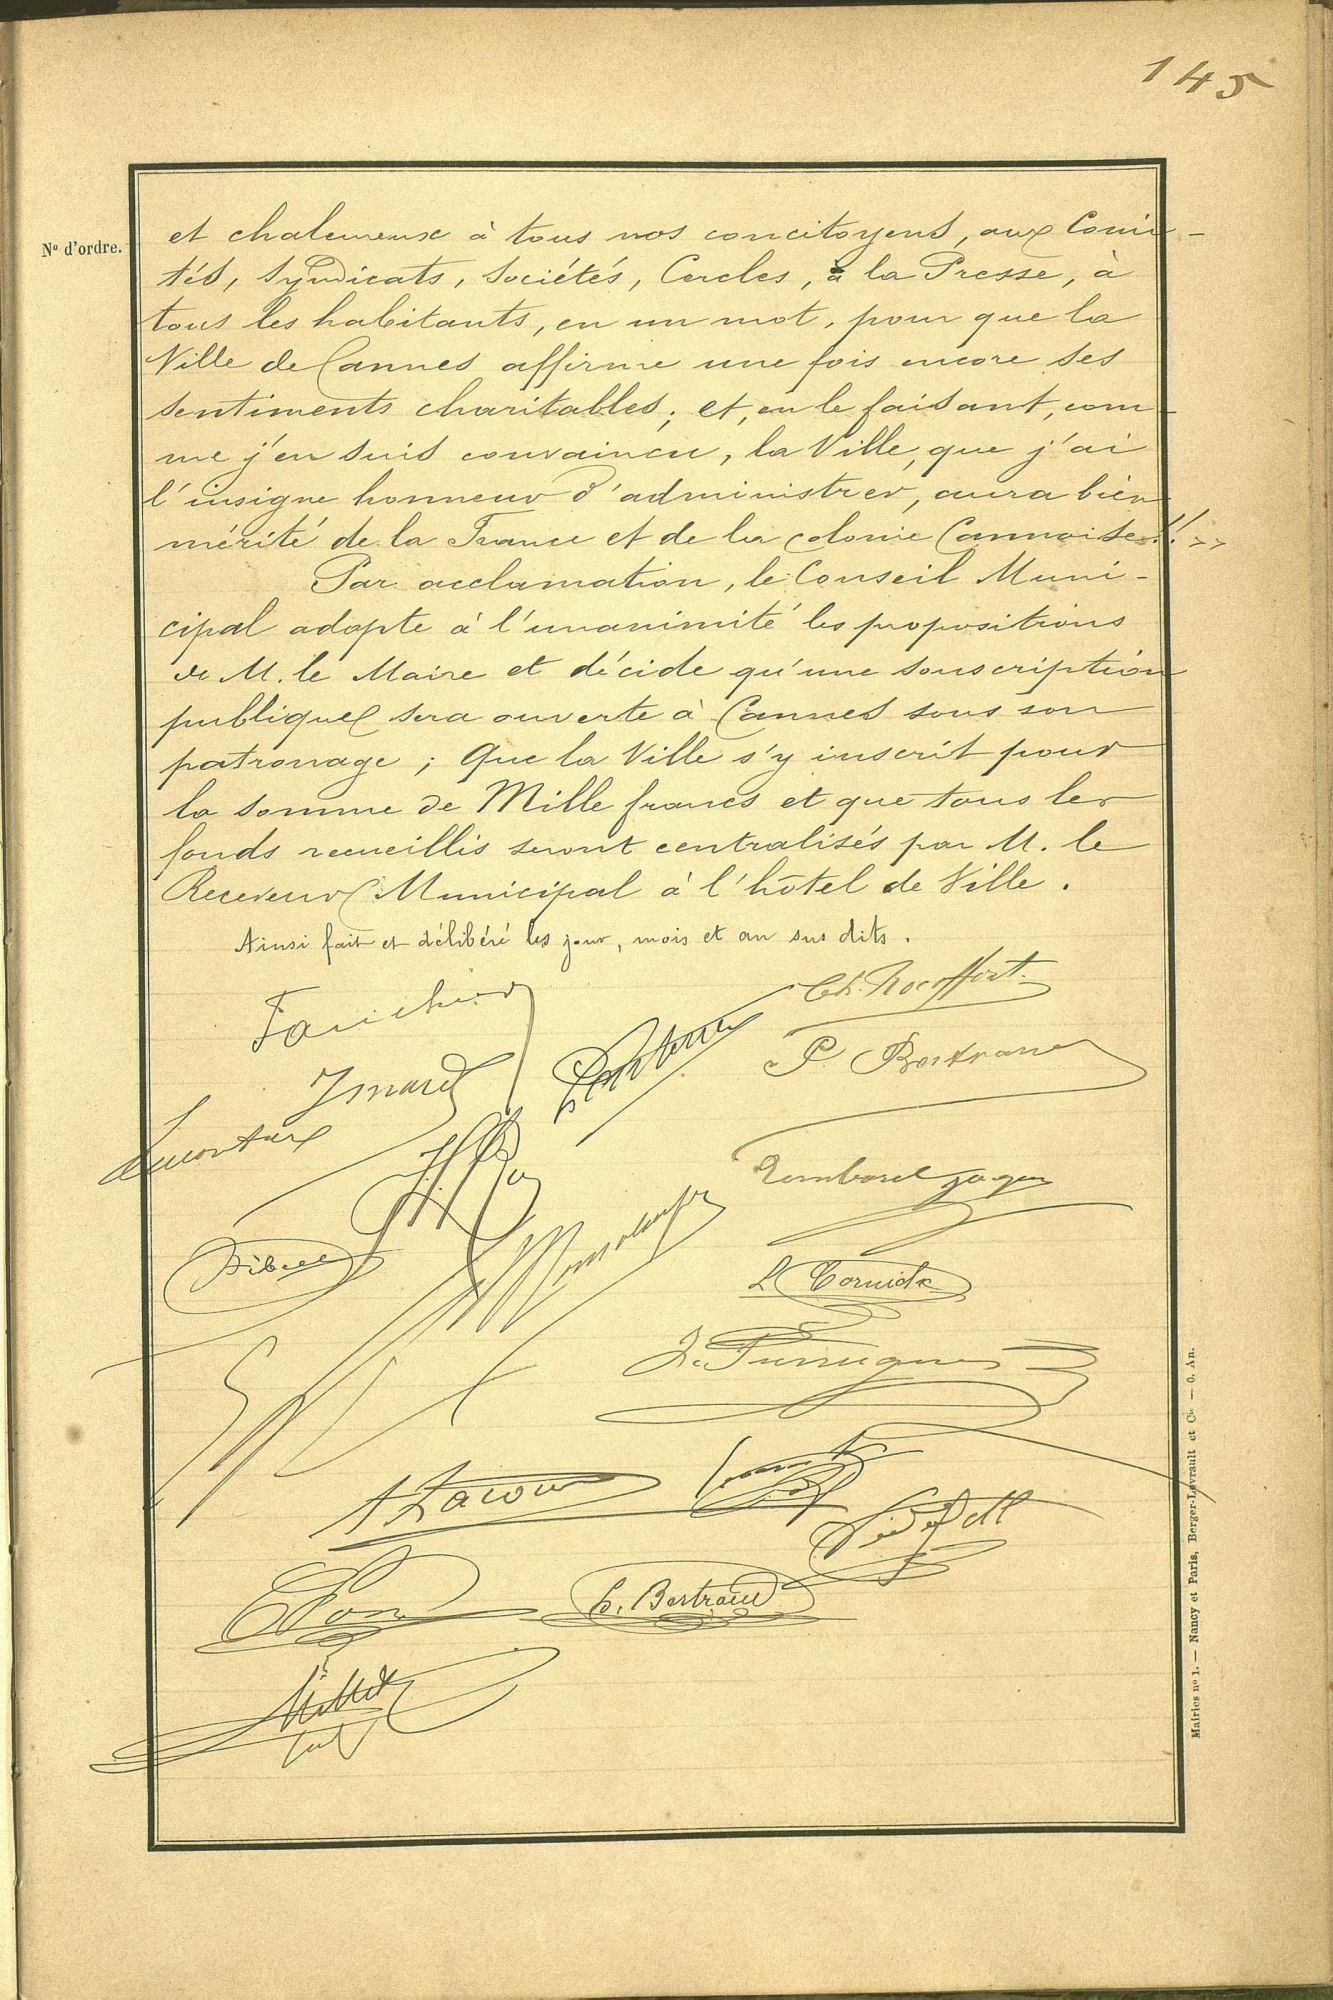 145
Nº d'ordre.
et chaleureux à tous nos concitoyens, aux Comi-
tés, Syndicats, Sociétés, Cercles, à la Presse, à
tous les habitants, en un mot, pour que la
Ville de Cannes affirme une fois encore ses
sentiments charitables; et, en le faisant, com-
me j'en suis convaincu, la Ville, que j'ai
l'insigne honneur d'administrer, aura bien
mérité de la France et de la colonie Cannoise!! »
Par acclamation, le Conseil Muni-
cipal adopte à l'unanimité les propositions
de M. le Maire et décide qu'une souscription
publique sera ouverte à Cannes sous son
patronage; Que la Ville s'y inscrit pour
la somme de Mille francs et que tous les
fonds recueillis seront centralisés par M. le
Receveur Municipal à l'hôtel de Ville.
Ainsi fait et délibéré les jour, mois et an sus dits.
Ch. Rocoffort
Isnard
P. Bertrand
A Lacour
h. Bertrand
Millet
Mairies nº 1. — Nancy et Paris, Berger-Levrault et Cie — O. An.